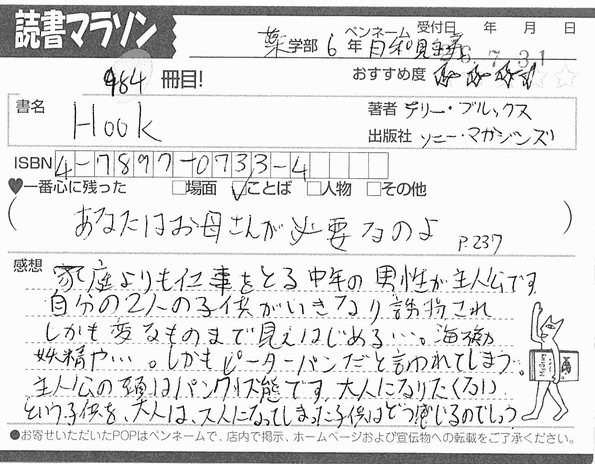 読書マラソン
薬学部 6年 ペンネーム 受付日 年 月 日
6.7.31
484 冊目! おすすめ度
書名 Hook
著者 テリー・ブルックス
出版社 ソニー・マガジンズ
ISBN 4-7897-0733-4
♥一番心に残った □場面 ☑ことば □人物 □その他
(あなたはお母さんが必要なのよ P.237)
感想
家庭よりも仕事をとる中年の男性が主人公です
自分の2人の子供がいきなり誘拐され
しかも変なものまで見えはじめる…。海賊
妖精や…。しかもピーターパンだと言われてしまう。
主人公の頭はパンク状態です。大人になりたくない
という子供を、大人は、大人になってしまった子供はどう感じるのでしょう
●お寄せいただいたPOPはペンネームで、店内で掲示、ホームページおよび宣伝物への転載をご了承ください。